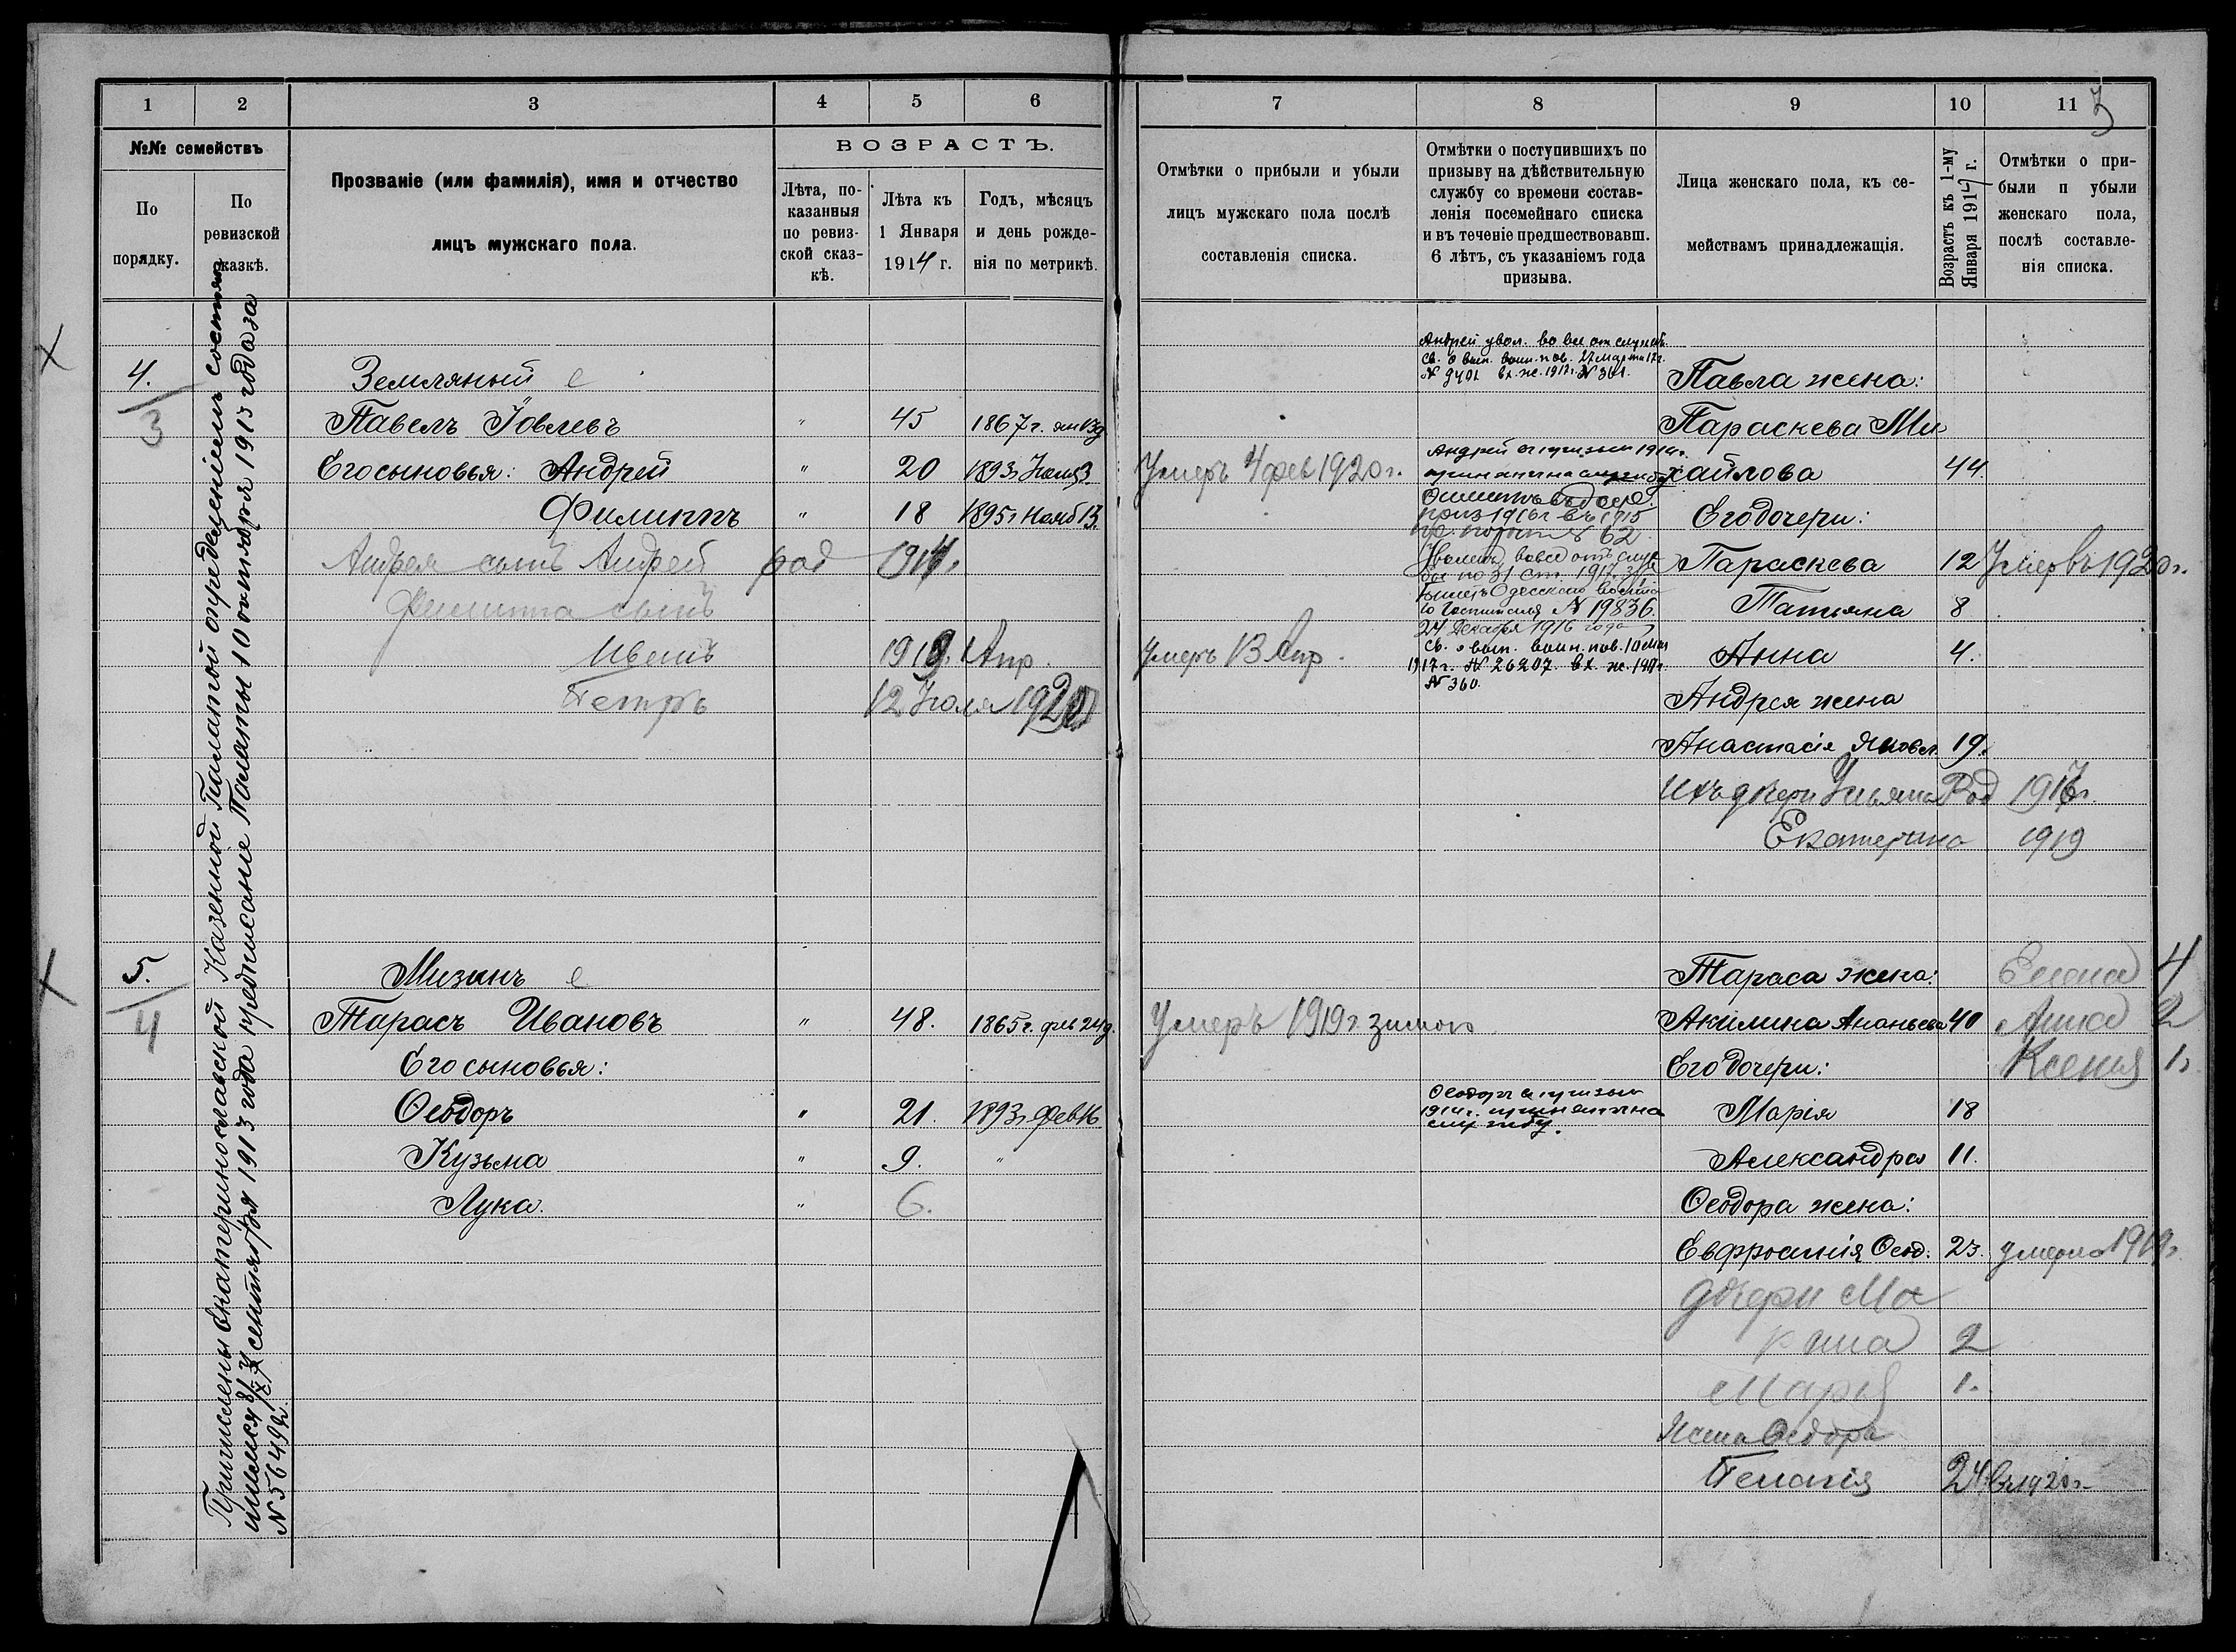 1 2 3 4 5 6
№№ семействъ
По порядку.
По ревизской сказкѣ.
Прозваніе (или фамилія), имя и отчество
лицъ мужскаго пола.
ВОЗРАСТЪ.
Лѣта, по-
казанныя
по ревиз-
ской сказ-
кѣ.
Лѣта къ
1 Января
1914 г.
Годъ, мѣсяцъ
и день рожде-
нія по метрикѣ.
Причислены Екатеринославской Казенной Палатой
сентября 1913 года предписаніе Палаты 10 октября 1913 года за
№ 56492.
4.
3
Земляный с
Павелъ Іовлевъ " 45 1867 г. 13
Его сыновья: Андрей " 20 1893 г. 3
Филиппъ " 18 1895 г. 13.
Андрея сынъ Андрей род 1914 г.
Филиппа сынъ
Иванъ 1919 1 Апр.
Петръ 12 Июля 1920
5.
4
Мизинъ с
Тарасъ Ивановъ " 48. 1865 г. фев 24 д
Его сыновья:
Ѳеодоръ " 21. 1893 г. фев 16
Кузьма " 9. "
Лука. " 6.
7 8 9 10 11
3
Отмѣтки о прибыли и убыли
лицъ мужскаго пола послѣ
составленія списка.
Отмѣтки о поступившихъ по
призыву на дѣйствительную
службу со времени состав-
ленія посемейнаго списка
и въ теченіе предшествовавш.
6 лѣтъ, съ указаніемъ года
призыва.
Лица женскаго пола, къ се-
мействамъ принадлежащія.
Возрастъ къ 1-му
Января 1914 г.
Отмѣтки о при-
были п убыли
женскаго пола,
послѣ составле-
нія списка.
Андрей увол. во все от служб.
Св. о вып. воин. пов. 27 марта 17 г.
№ 9401 вх. ж. 1917 г. № 361.
Павла жена:
Параскева Ми
Умеръ 4 фев 1920 г.
Андрей призыва 1914 г.
принятъ на службу
хайлова 44.
приз 1916 г. въ 1915
62
Его дочери:
во все отъ служ
бы по 31 ст. 1917
Параскева 12 Умер въ 1920 г.
Одесского
Госпиталя № 19836.
Татьяна 8
24 Декабря 1916 года
Умеръ 13 Апр.
Св. о вып. воин. пов. 10 мая
1917 г. № 26207. вх. ж. 1917 г.
№ 360.
Анна 4.
Андрея жена
Анастасія Яковл. 19.
Ихъ дчери Ульяна Род 1917 г.
Екатерина 1919
Тараса жена: Елена 4
Умеръ 1919 г. зимою
Акилина Ананьева 40 Анна 2
Его дочери: Ксения 1.
Ѳеодоръ призыва
1914 г. принятъ на
службу.
Марія 18
Александра 11.
Ѳеодора жена:
Евфросинія Ѳеод. 23. умерла 1919 г.
дочери Ма
рина 2
Мария 1.
Жена Ѳедора
Пелагія 24 въ 1920 г.